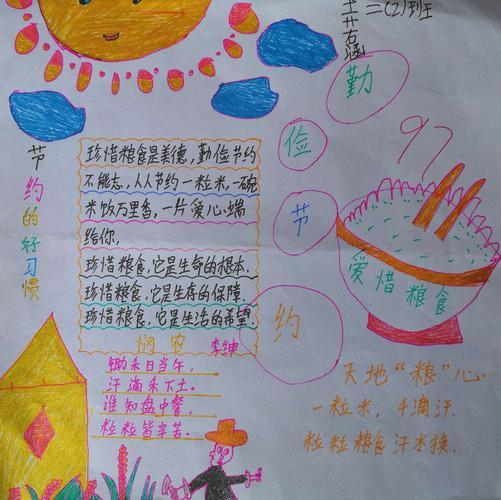 二(2)班
勤
俭
节
约
97
节约的好习惯
珍惜粮食是美德,勤俭节约
不能忘,人人节约一粒米,一碗
米饭万里香,一片爱心端
给你,
珍惜粮食,它是生命的根本.
珍惜粮食,它是生存的保障.
珍惜粮食,它是生活的希望.
悯农 李绅
锄禾日当午,
汗滴禾下土。
谁知盘中餐,
粒粒皆辛苦.
爱惜粮食
天地“粮”心
一粒米,千滴汗.
粒粒粮食汗水换.